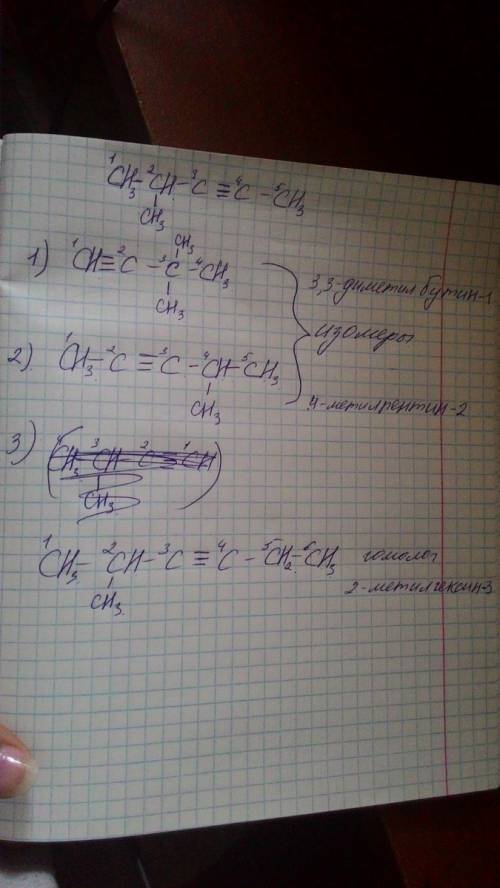 ¹CH₃-²CH-³C≡⁴C-⁵CH₃
CH₃
CH₃
1) ¹CH≡²C-³C-⁴CH₃
CH₃
3,3-диметилбутин-1
изомеры
2) ¹CH₃-²C≡³C-⁴CH-⁵CH₃
CH₃
4-метилпентин-2
3) (⁴CH₃-³CH-²C≡¹CH)
CH₃
¹CH₃-²CH-³C≡⁴C-⁵CH₂-⁶CH₃
CH₃
гомолог
2-метилгексин-3